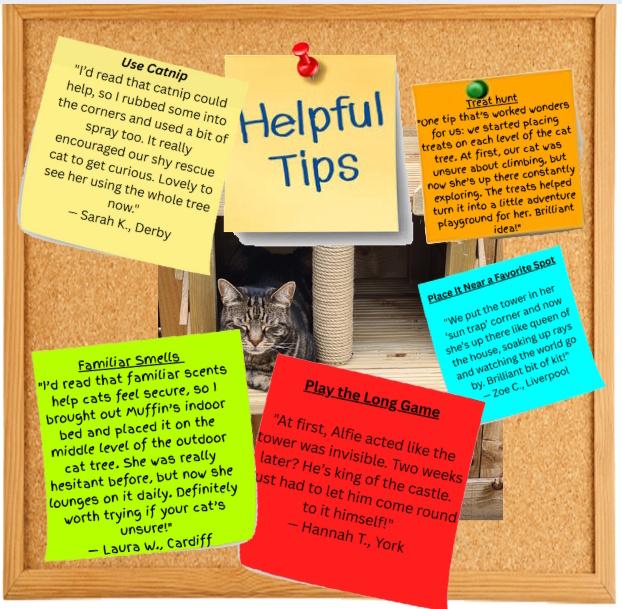 Use Catnip
"I'd read that catnip could
help, so I rubbed some into
the corners and used a bit of
spray too. It really
encouraged our shy rescue
cat to get curious. Lovely to
see her using the whole tree
now."
— Sarah K., Derby
Helpful
Tips
Treat hunt
"One tip that's worked wonders
for us: we started placing
treats on each level of the cat
tree. At first, our cat was
unsure about climbing, but
now she's up there constantly
exploring. The treats helped
turn it into a little adventure
playground for her. Brilliant
idea!"
Place It Near a Favorite Spot
"We put the tower in her
'sun trap' corner and now
she's up there like queen of
the house, soaking up rays
and watching the world go
by. Brilliant bit of kit!"
— Zoe C., Liverpool
Familiar Smells
"I'd read that familiar scents
help cats feel secure, so I
brought out Muffin's indoor
bed and placed it on the
middle level of the outdoor
cat tree. She was really
hesitant before, but now she
lounges on it daily. Definitely
worth trying if your cat's
unsure!"
— Laura W., Cardiff
Play the Long Game
"At first, Alfie acted like the
tower was invisible. Two weeks
later? He's king of the castle.
ust had to let him come round
to it himself!"
— Hannah T., York